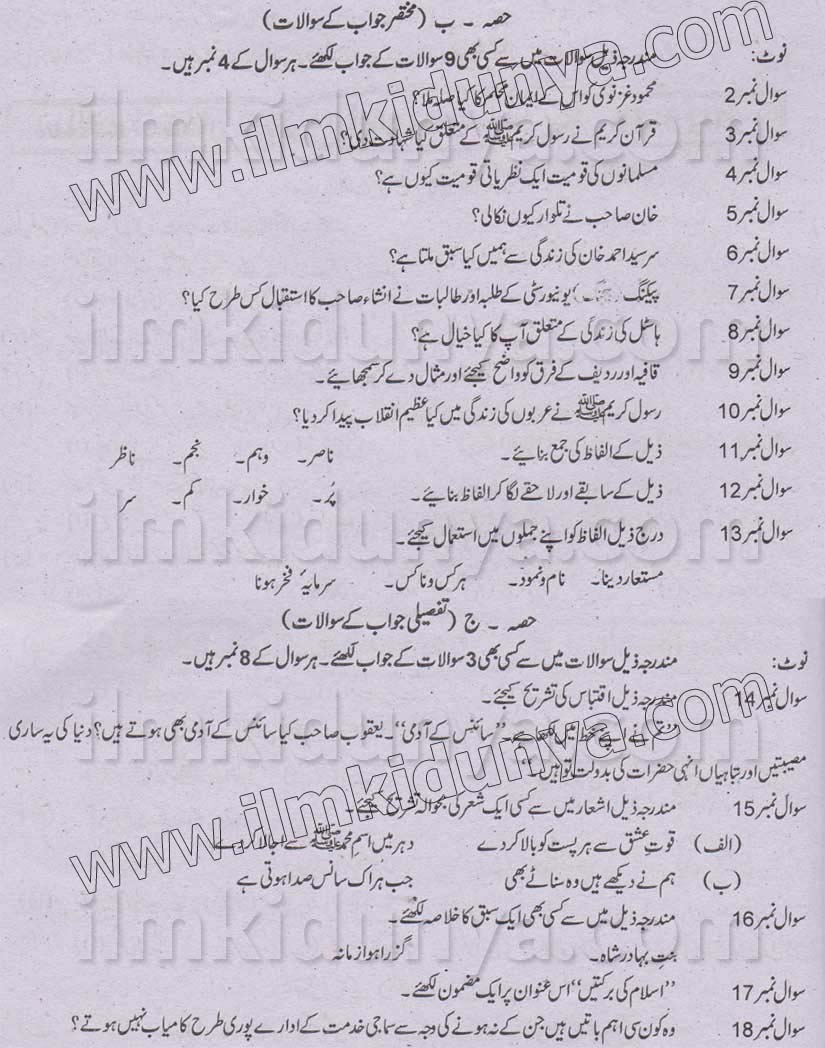 حصہ ۔ ب (مختصر جواب کے سوالات)
نوٹ: مندرجہ ذیل سوالات میں سے کسی بھی 9 سوالات کے جواب لکھئے۔ ہر سوال کے 4 نمبر ہیں۔
سوال نمبر 2 محمود غزنوی کو اس کے ایمان محکم کا کیا صلہ ملا؟
سوال نمبر 3 قرآن کریم نے رسول کریم ﷺ کے متعلق کیا شہادت دی؟
سوال نمبر 4 مسلمانوں کی قومیت ایک نظریاتی قومیت کیوں ہے؟
سوال نمبر 5 خان صاحب نے تلوار کیوں نکالی؟
سوال نمبر 6 سرسید احمد خان کی زندگی سے ہمیں کیا سبق ملتا ہے؟
سوال نمبر 7 پیکنگ یونیورسٹی کے طلبہ اور طالبات نے انشاء صاحب کا استقبال کس طرح کیا؟
سوال نمبر 8 ہاسٹل کی زندگی کے متعلق آپ کا کیا خیال ہے؟
سوال نمبر 9 قافیہ اور ردیف کے فرق کو واضح کیجئے اور مثال دے کر سمجھائیے۔
سوال نمبر 10 رسول کریم ﷺ نے عربوں کی زندگی میں کیا عظیم انقلاب پیدا کر دیا؟
سوال نمبر 11 ذیل کے الفاظ کی جمع بنائیے۔ ناصر۔ وہم۔ نجم۔ ناظر
سوال نمبر 12 ذیل کے سابقے اور لاحقے لگا کر الفاظ بنائیے۔ پُر۔ خوار۔ کم۔ سر
سوال نمبر 13 درج ذیل الفاظ کو اپنے جملوں میں استعمال کیجئے۔
مستعار دینا۔ نام و نمود۔ ہر کس و ناکس۔ سرمایۂ فخر ہونا
حصہ ۔ ج (تفصیلی جواب کے سوالات)
نوٹ: مندرجہ ذیل سوالات میں سے کسی بھی 3 سوالات کے جواب لکھئے۔ ہر سوال کے 8 نمبر ہیں۔
سوال نمبر 14 مندرجہ ذیل اقتباس کی تشریح کیجئے۔
نے اپنے خط میں لکھا ہے۔ ”سائنس کے آدمی“۔ یعقوب صاحب کیا سائنس کے آدمی بھی ہوتے ہیں؟ دنیا کی یہ ساری
مصیبتیں اور تباہیاں انہی حضرات کی بدولت تو ہیں“
سوال نمبر 15 مندرجہ ذیل اشعار میں سے کسی ایک شعر کی بحوالہ تشریح کیجئے۔
(الف) قوتِ عشق سے ہر پست کو بالا کر دے دہر میں اسمِ محمد ﷺ سے اجالا کر دے
(ب) ہم نے دیکھے ہیں وہ سناٹے بھی جب ہر اک سانس صدا ہوتی ہے
سوال نمبر 16 مندرجہ ذیل میں سے کسی بھی ایک سبق کا خلاصہ لکھئے۔
بنتِ بہادر شاہ۔ گزرا ہوا زمانہ
سوال نمبر 17 ”اسلام کی برکتیں“ اس عنوان پر ایک مضمون لکھئے۔
سوال نمبر 18 وہ کون سی اہم باتیں ہیں جن کے نہ ہونے کی وجہ سے سماجی خدمت کے ادارے پوری طرح کامیاب نہیں ہوتے؟
www.ilmkidunya.com
ilmkidunya.com
ilmkidunya.com
ilmkidunya.com
ilmkidunya.com
www.ilmkidunya.com
ilmkidunya.com
ilmkidunya.com